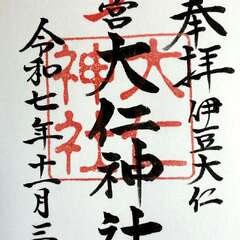 奉拝
伊豆大仁
営大仁神社
大仁神社
令和七年十一月三